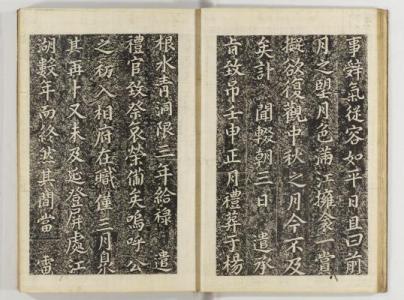 事辭氣從容如平日且曰前
月之望月色滿江擁衾一賞
擬欲復觀中秋之月今不及
矣訃聞輟朝三日遣承
旨致弔壬申正月禮葬于楊
根水青洞限三年給祿遣
禮官致祭哀榮備矣嗚呼公
之初入相府在職僅三月泉
其再卜又未及延登屛處江
湖數年而終然其聞當雷